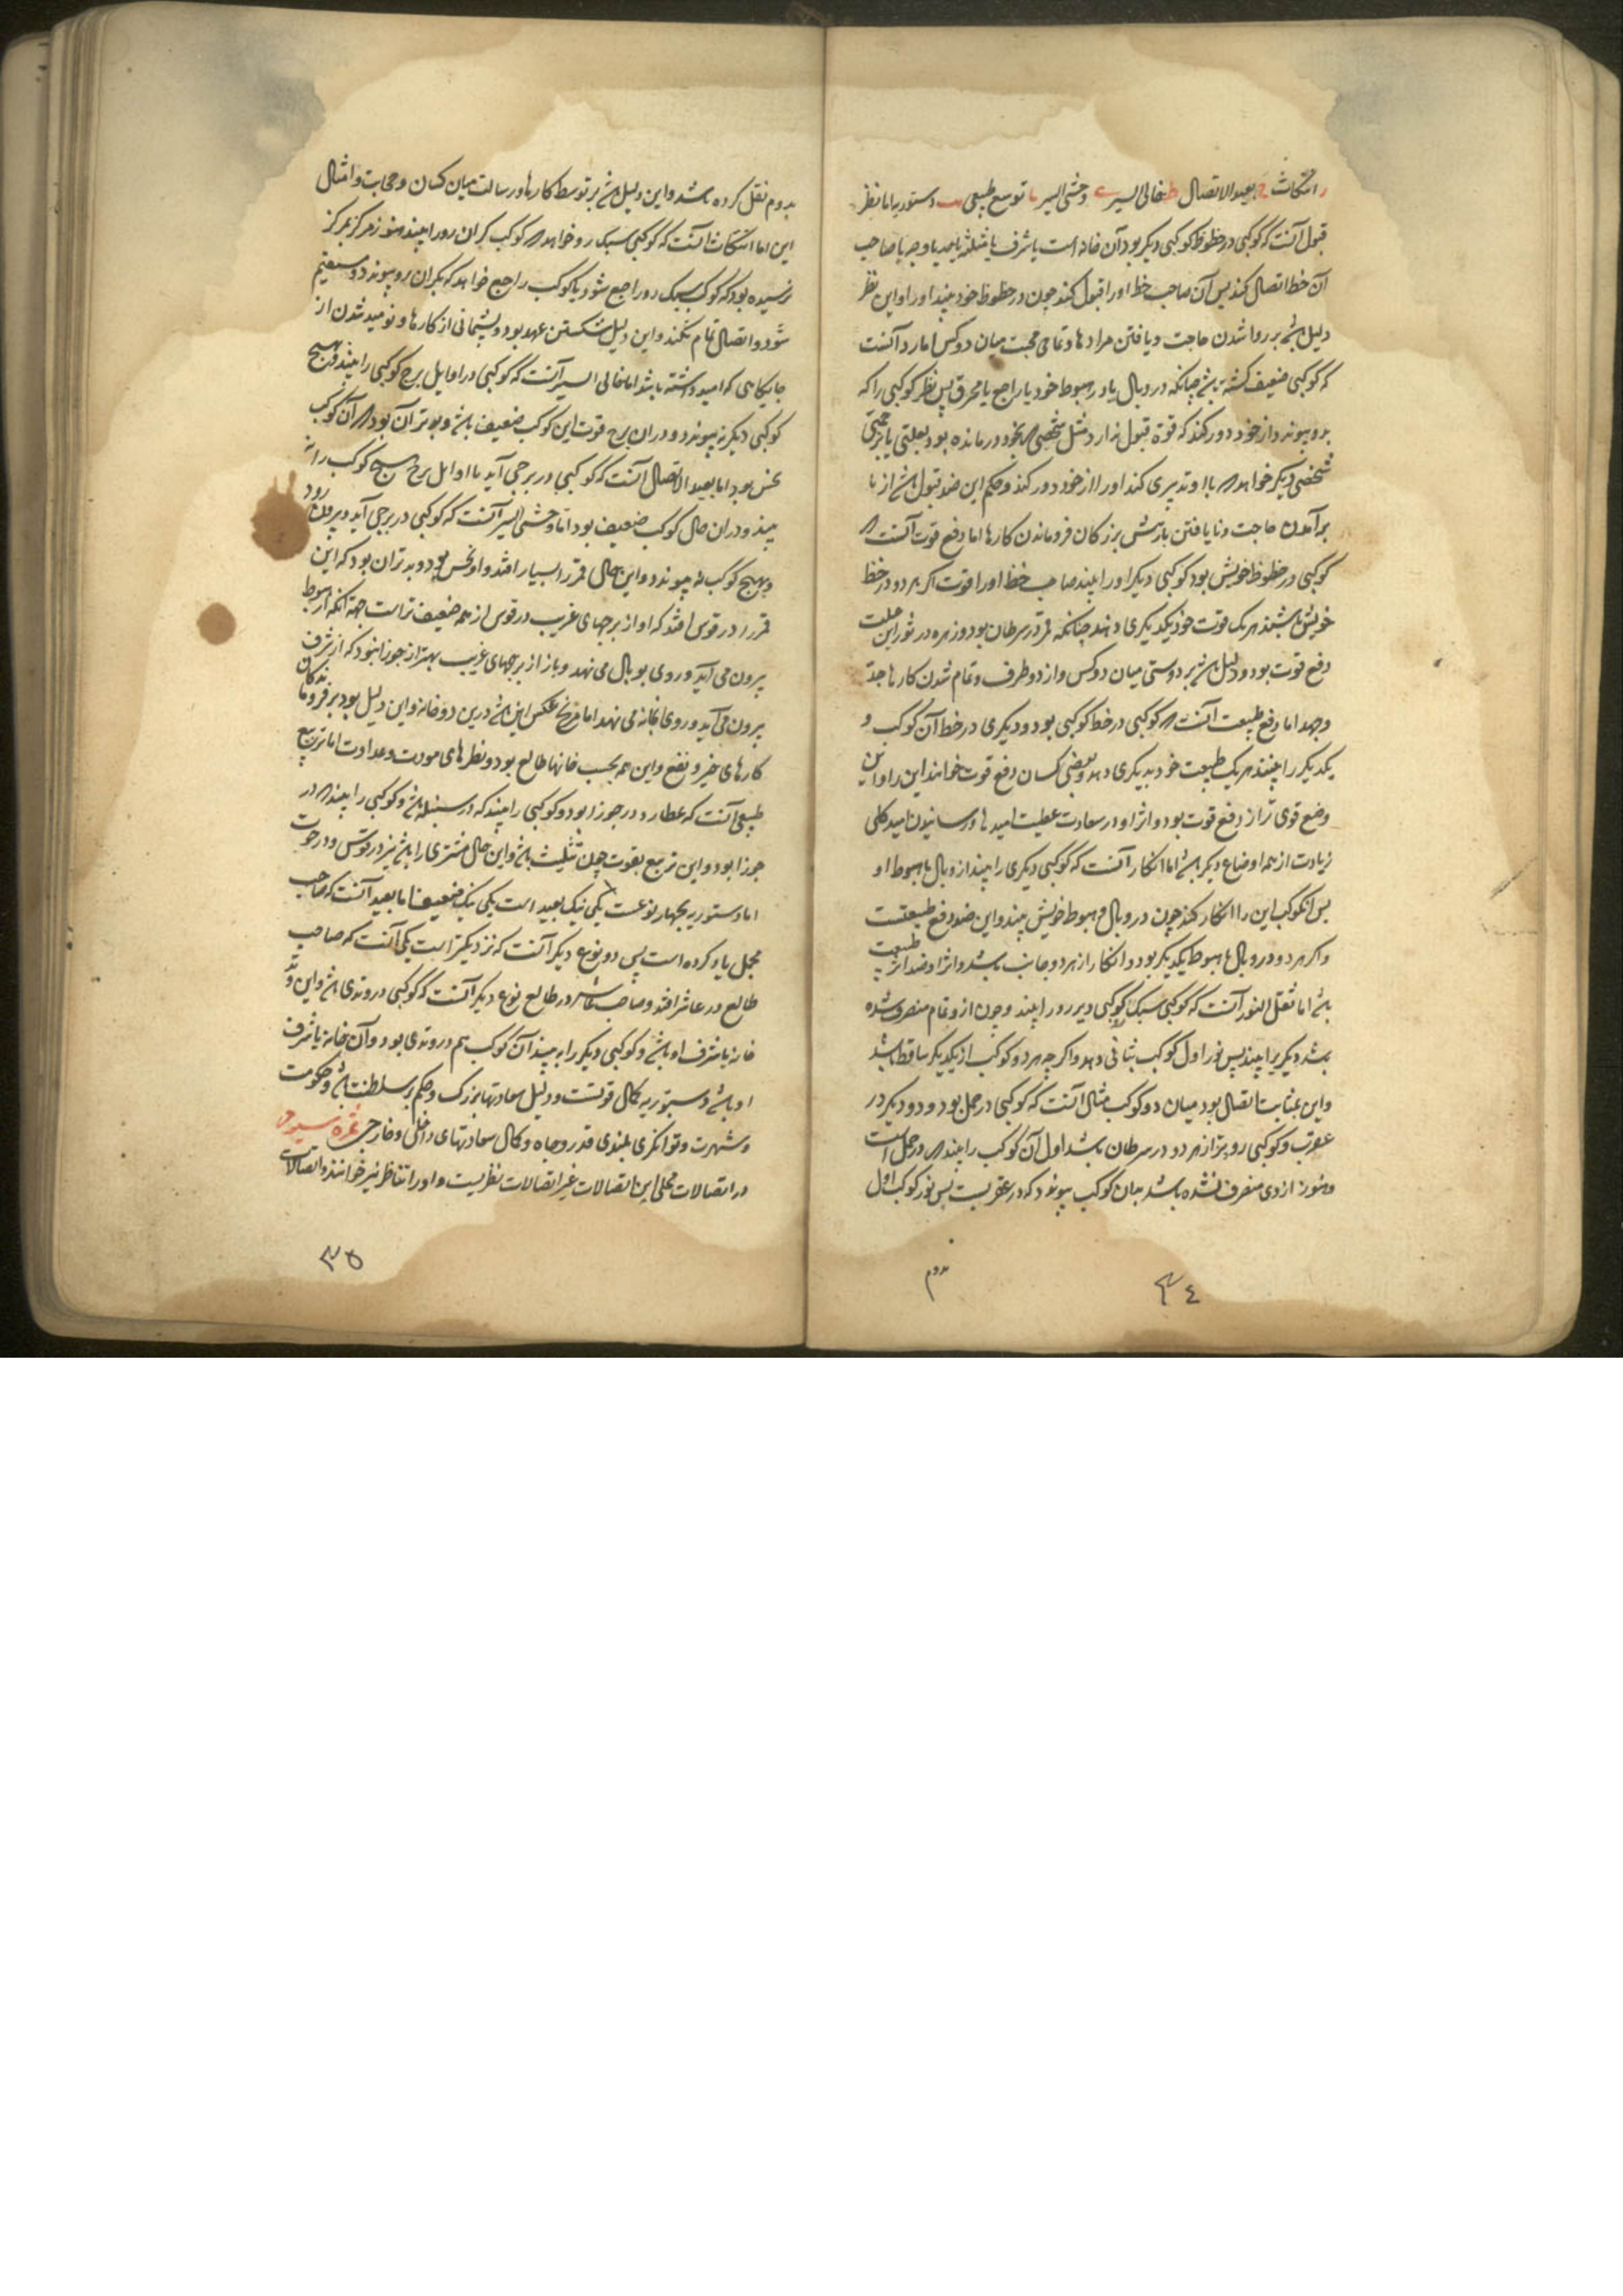 انتکاث ح بعید الاتصال ط خالی السیر ی وحشی السیر یا توسع طبیعی یب دستوریه اما نظر
قبول آنست که کوکبی در حظوظ کوکبی دیکر بود آن خانه است یا شرف یا مثلثه یا حد یا وجه یا صاحب
آن خط اتصال کند پس آن صاحب خط او را قبول کند چون در حظوظ خود بیند او را و این نظر
دلیل باشد بر روا شدن حاجت و یافتن مراد ها و تمامی محبت میان دو کس اما رد آنست
که کوکبی ضعیف کشته باشد چنانکه در وبال یا در هبوط خود یا راجع یا محرق پس نظر کوکبی را که
بدو پیوندد از خود دور کند که قوة قبول ندارد مثل شخصی که بخود درمانده بود بعلتی یا
شخصی دیکر خواهد که با او تدبیری کند او را از خود دور کند و حکم این ضد قبول باشد از نا
برآمدن حاجت و نا یافتن بار پیش بزرکان فروماندن کارها اما دفع قوت آنست که
کوکبی در حظوظ خویش بود کوکبی دیکر او را بیند صاحب خط او را قوت اکر هر دو در خط
خویش باشند هر یک قوت خود بیکدیکری دهند چنانکه قمر در سرطان بود و زهره در ثور این
دفع قوت بود و دلیل باشد بر دوستی میان دو کس و از دو طرف و تمام شدن کارها بجد
و جهد اما دفع طبیعت آنست که کوکبی در خط کوکبی بود و دیکری در خط آن کوکب و
یکدیکر را بینند هر یک طبیعت خود بدیکری دهد و بعضی کسان دفع قوت خوانند این را و این
وضع قوی تر از دفع قوت بود و اثر او در سعادت عطیت امید ها و رسانیدن امید کلی
زیادت از همه اوضاع دیکر باشد اما انکار آنست که کوکبی دیکری را بیند از وبال یا هبوط او
پس آن کوکب این را انکار کند چون در وبال و هبوط خویش بیند و این ضد دفع طبیعتست
و اکر هر دو در وبال یا هبوط یکدیکر بود و انکار از هر دو جانب باشد و اثر او ضد اثر طبیعت
باشد اما نقل النور آنست که کوکبی سبک کوکبی دیر رو را بیند و چون از و تمام منصرف شده
باشد دیکریرا بیند پس نور اول کوکب بثانی دهد و اکر چه هر دو کوکب از یکدیکر ساقط باشد
و این بمثابت اتصال بود میان دو کوکب مثال آنست که کوکبی در حمل بود و دیکر در
عقرب و کوکبی رو تر از هر دو در سرطان باشد اول آن کوکب را بیند که در حمل است
و هنوز از وی منصرف نشده باشد بدان کوکب پیوندد که در عقربست پس نور کوکب اول
بدوم
۳٤
بدوم نقل کرده باشد و این دلیل باشد بر توسط کارها و رسالت میان کسان و حجابت و امثال
این اما انتکاث آنست که کوکبی سبک رو خواهد که کوکب کران رو را بیند هنوز مرکز بمرکز
نرسیده بود که کوکب سبک رو راجع شود یا کوکب راجع خواهد که بکران رو پیوندد و مستقیم
شود و اتصال تمام نکند و این دلیل شکستن عهد بود و پشیمانی از کارها و نومید شدن از
جایکاهی که امید داشته باشد اما خالی السیر آنست که کوکبی در اوایل برج کوکبی را بیند و بهیچ
کوکبی دیکر نپیوندد و در ان برج قوت این کوکب ضعیف باشد و بدتر آن بود که آن کوکب
نحس بود اما بعید الاتصال آنست که کوکبی در برجی آید تا اوایل برج هیچ کوکب را نه
بیند و در ان حال کوکب ضعیف بود اما وحشی السیر آنست که کوکبی در برجی آید و بیرون رود
و بهیچ کوکب نه پیوندد و این حال قمر را بسیار افتد و او نحس بود و بدتر ان بود که این
قمر را در قوس افتد که او از برجهای غریب در قوس از همه ضعیف تر است جهة آنکه از هبوط
بیرون می آید و روی بوبال می نهد و باز از برجهای غریب بهتر از جوزا نبود که از شرف
بیرون می آید و روی بخانه می نهد اما مریخ عکس این باشد درین دو خانه و این دلیل بود بر فروماندکی
کارهای خیر و نفع و این همه بحسب خانها طالع بود و نظرهای مودت و عداوت اما تربیع
طبیعی آنست که عطارد در جوزا بود و کوکبی را بیند که در سنبله باشد و کوکبی را بیند که در
جوزا بود و این تربیع بقوت چون تثلیث باشد و این حال مشتری را باشد نیز در قوس و در حوت
اما دستوریه بچهار نوعست یکی نیک بعید است یکی نیک ضعیف اما بعید آنست که صاحب
مجمل یاد کرده است پس دو نوع دیکر آنست که نزدیکتر است یکی آنست که صاحب
طالع در عاشر افتد و صاحب عاشر در طالع نوع دیکر آنست که کوکبی در وتدی باشد و این وتد
خانه یا شرف او باشد و کوکبی دیکر را به بیند آن کوکب هم در وتدی بود و آن خانه یا شرف
او باشد و دستوریه کمال قوتست و دلیل سعادتهاء بزرک و حکم بر سلطنت باشد و حکومت
و شهرت و توانکری بلندی قدر و جاه و کمال سعادتهای داخلی و خارجی ثمره سیوم
در اتصالات محلی این اتصالات غیر اتصالات نظریست و او را تناظر نیز خوانند و اتصالات
۳۵